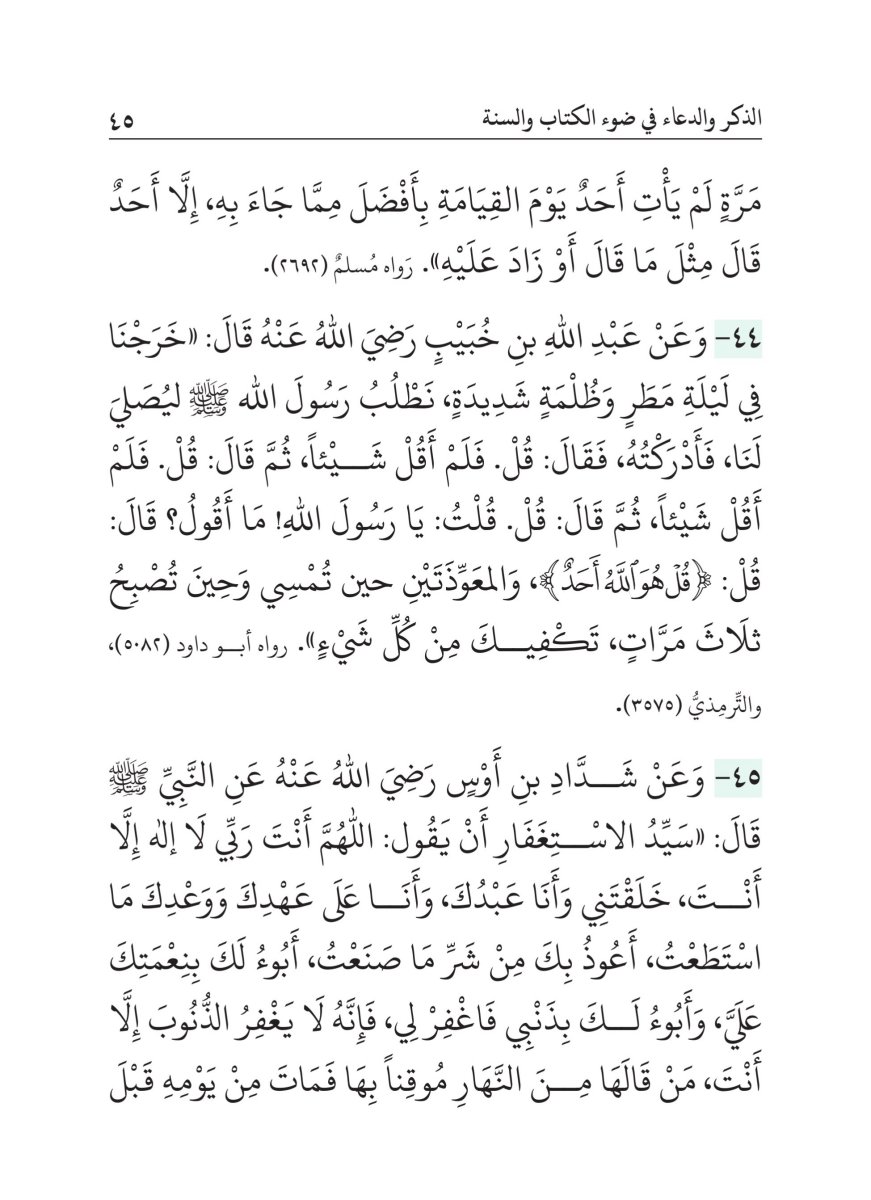 الذكر والدعاء في ضوء الكتاب والسنة ٤٥
مَرَّةٍ لَمْ يَأْتِ أَحَدٌ يَوْمَ القِيَامَةِ بِأَفْضَلَ مِمَّا جَاءَ بِهِ، إِلَّا أَحَدٌ
قَالَ مِثْلَ مَا قَالَ أَوْ زَادَ عَلَيْهِ». رَواه مُسلمٌ (٢٦٩٢).
٤٤- وَعَنْ عَبْدِ اللهِ بنِ خُبَيْبٍ رَضِيَ اللهُ عَنْهُ قَالَ: «خَرَجْنَا
فِي لَيْلَةِ مَطَرٍ وَظُلْمَةٍ شَدِيدَةٍ، نَطْلُبُ رَسُولَ الله ﷺ ليُصَلِيَ
لَنَا، فَأَدْرَكْتُهُ، فَقَالَ: قُلْ. فَلَمْ أَقُلْ شَـــيْئاً، ثُمَّ قَالَ: قُلْ. فَلَمْ
أَقُلْ شَيْئاً، ثُمَّ قَالَ: قُلْ. قُلْتُ: يَا رَسُولَ اللهِ! مَا أَقُولُ؟ قَالَ:
قُلْ: ﴿قُلْ هُوَ ٱللَّهُ أَحَدٌ﴾، وَالمعَوِّذَتَيْنِ حين تُمْسِي وَحِينَ تُصْبِحُ
ثلَاثَ مَرَّاتٍ، تَكْفِيـــكَ مِنْ كُلِّ شَيْءٍ». رواه أبـــو داود (٥٠٨٢)،
والتِّرمِذيُّ (٣٥٧٥).
٤٥- وَعَنْ شَـــدَّادِ بنِ أَوْسٍ رَضِيَ اللهُ عَنْهُ عَنِ النَّبِيِّ ﷺ
قَالَ: «سَيِّدُ الاسْـــتِغَفَارِ أَنْ يَقُول: اللهُمَّ أَنْتَ رَبِّي لَا إلٰه إِلَّا
أَنْـــتَ، خَلَقْتَنِي وَأَنَا عَبْدُكَ، وَأَنَـــا عَلَى عَهْدِكَ وَوَعْدِكَ مَا
اسْتَطَعْتُ، أَعُوذُ بِكَ مِنْ شَرِّ مَا صَنَعْتُ، أَبُوءُ لَكَ بِنِعْمَتِكَ
عَلَيَّ، وَأَبُوءُ لَـــكَ بِذَنْبِي فَاغْفِرْ لِي، فَإِنَّهُ لَا يَغْفِرُ الذُّنُوبَ إِلَّا
أَنْتَ، مَنْ قَالَهَا مِـــنَ النَّهَارِ مُوقِناً بِهَا فَمَاتَ مِنْ يَوْمِهِ قَبْلَ